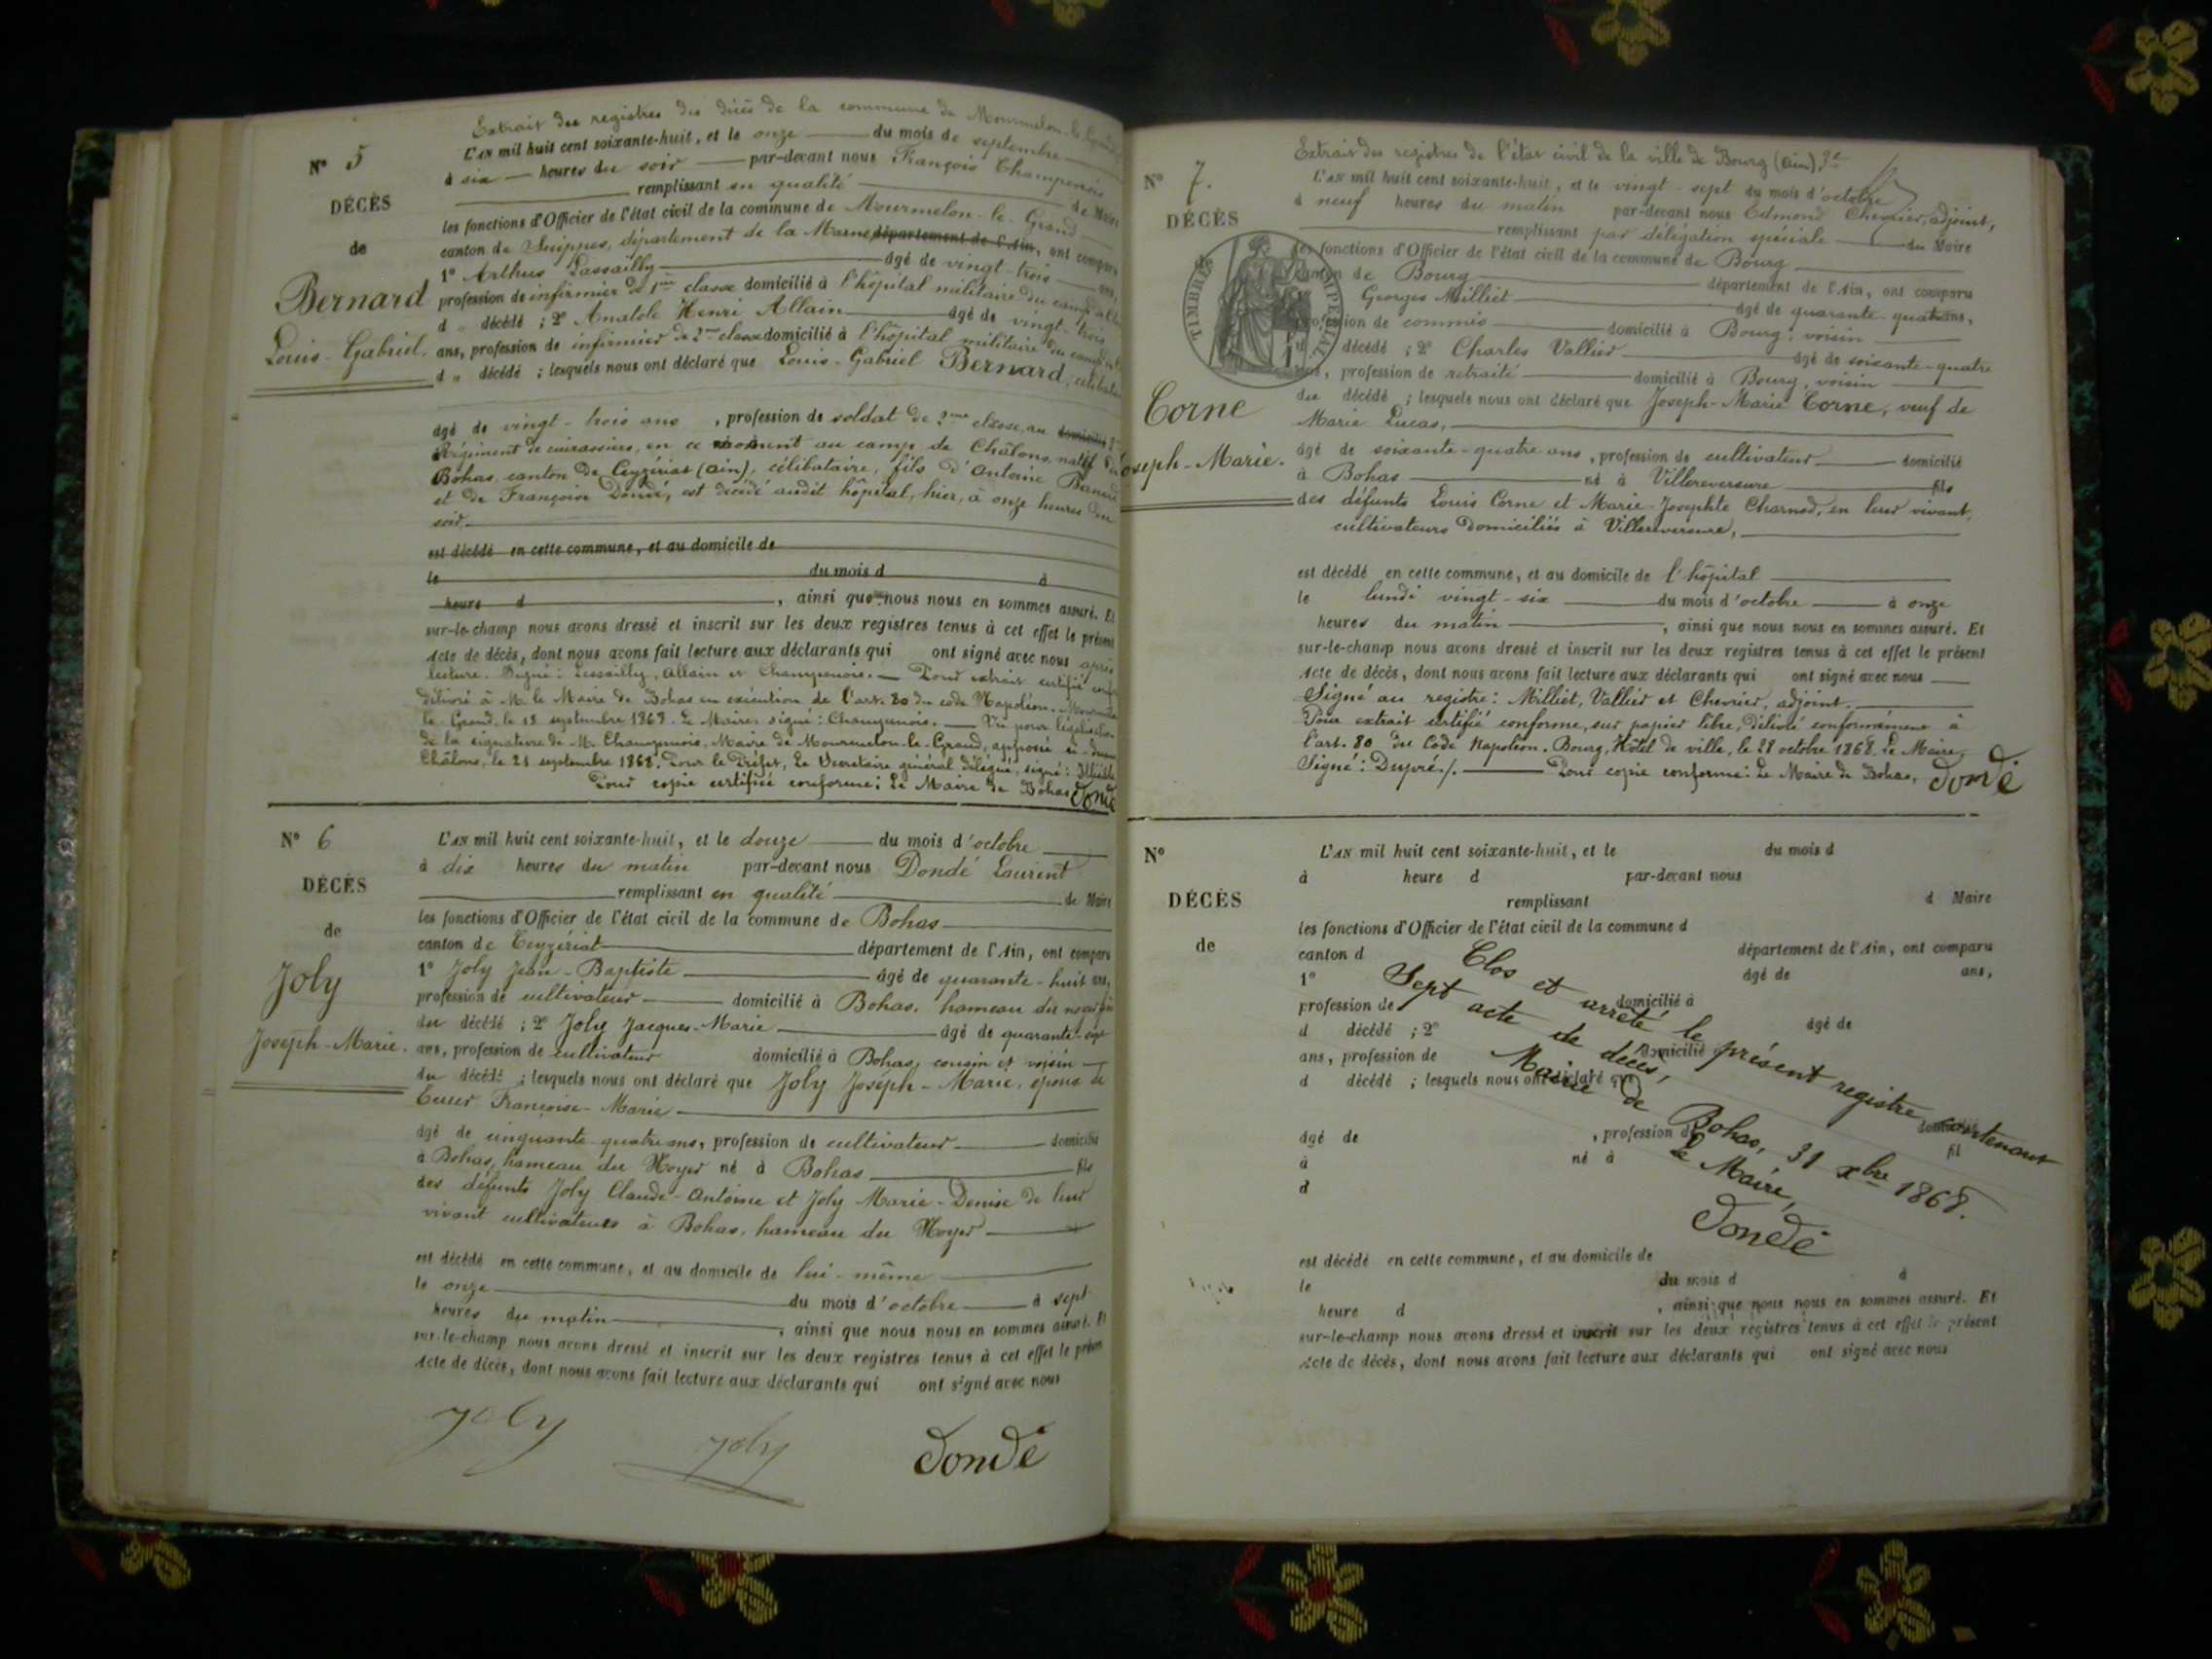 Extrait des registres des décès de la commune de Mourmelon-le-Grand
N° 5
L'AN mil huit cent soixante-huit, et le onze du mois de septembre
à six heures du soir par-devant nous François Champenois
remplissant en qualité de Maire
DÉCÈS
les fonctions d'Officier de l'état civil de la commune de Mourmelon-le-Grand
de
canton de Suippes, département de la Marne, département de l'Ain, ont comparu
1° Arthur Lassailly âgé de vingt-trois ans,
Bernard
profession de infirmier de 1ère classe domicilié à l'hôpital militaire du camp
d " décédé ; 2° Anatole Henri Allain âgé de vingt-trois
Louis-Gabriel.
ans, profession de infirmier de 2me classe domicilié à l'hôpital militaire du camp
d " décédé ; lesquels nous ont déclaré que Louis-Gabriel Bernard, célibataire
âgé de vingt-trois ans, profession de soldat de 2me classe, au domicilié
Régiment de cuirassiers, en ce moment au camp de Châlons, natif de
Bohas, canton de Ceyzériat (Ain), célibataire, fils d'Antoine
et de Françoise Dondé, est décédé audit hôpital, hier, à onze heures du
soir.
est décédé en cette commune, et au domicile de
le du mois d à
heure d , ainsi que nous nous en sommes assuré. Et
sur-le-champ nous avons dressé et inscrit sur les deux registres tenus à cet effet le présent
acte de décès, dont nous avons fait lecture aux déclarants qui ont signé avec nous après
lecture. Signé : Lassailly, Allain et Champenois. Pour extrait certifié
délivré à M. le Maire de Bohas en exécution de l'art. 80 du code Napoléon. Mourmelon
le Grand, le 13 septembre 1868. Le Maire, signé : Champenois. Vu pour légalisation
de la signature de M. Champenois, Maire de Mourmelon-le-Grand, apposée ci-dessus
Châlons, le 21 septembre 1868. Pour le Préfet, Le Secrétaire général délégué, signé : Illisible
Pour copie certifiée conforme : Le Maire de Bohas Dondé
N° 6
L'AN mil huit cent soixante-huit, et le douze du mois d'octobre
à dix heures du matin par-devant nous Dondé Laurent
DÉCÈS
remplissant en qualité de Maire
les fonctions d'Officier de l'état civil de la commune de Bohas
de
canton de Ceyzériat département de l'Ain, ont comparu
1° Joly Jean-Baptiste âgé de quarante-huit ans,
Joly
profession de cultivateur domicilié à Bohas, hameau du noyer
du décédé ; 2° Joly Jacques-Marie âgé de quarante-sept
Joseph-Marie.
ans, profession de cultivateur domicilié à Bohas, cousin et voisin
du décédé ; lesquels nous ont déclaré que Joly Joseph-Marie, époux de
Françoise-Marie
âgé de cinquante-quatre ans, profession de cultivateur domicilié
à Bohas, hameau du Noyer né à Bohas fils
des défunts Joly Claude-Antoine et Joly Marie-Denise de leur
vivant cultivateurs à Bohas, hameau du Noyer
est décédé en cette commune, et au domicile de lui-même
le onze du mois d'octobre à sept
heures du matin , ainsi que nous nous en sommes assuré. Et
sur-le-champ nous avons dressé et inscrit sur les deux registres tenus à cet effet le présent
acte de décès, dont nous avons fait lecture aux déclarants qui ont signé avec nous
Joly Joly Dondé
Extrait des registres de l'état civil de la ville de Bourg (Ain),
N° 7.
L'AN mil huit cent soixante-huit, et le vingt-sept du mois d'octobre
à neuf heures du matin par-devant nous Edmond Chevrier, adjoint,
DÉCÈS
remplissant par délégation spéciale du Maire
les fonctions d'Officier de l'état civil de la commune de Bourg
TIMBRE IMPÉRIAL
canton de Bourg département de l'Ain, ont comparu
Georges Milliet âgé de quarante-quatre ans,
profession de commis domicilié à Bourg, voisin
du décédé ; 2° Charles Vallier âgé de soixante-quatre
ans, profession de retraité domicilié à Bourg, voisin
Corne
du décédé ; lesquels nous ont déclaré que Joseph-Marie Corne, veuf de
Marie Lucas,
Joseph-Marie.
âgé de soixante-quatre ans, profession de cultivateur domicilié
à Bohas né à Villereversure fils
des défunts Louis Corne et Marie-Josephte Charnod, en leur vivant,
cultivateurs domiciliés à Villereversure,
est décédé en cette commune, et au domicile de l'hôpital
le lundi vingt-six du mois d'octobre à onze
heures du matin , ainsi que nous nous en sommes assuré. Et
sur-le-champ nous avons dressé et inscrit sur les deux registres tenus à cet effet le présent
acte de décès, dont nous avons fait lecture aux déclarants qui ont signé avec nous
Signé au registre : Milliet, Vallier et Chevrier, adjoint.
Pour extrait certifié conforme, sur papier libre, délivré conformément à
l'art. 80 du Code Napoléon. Bourg, Hôtel de ville, le 28 octobre 1868. Le Maire,
Signé : Dupré./. Pour copie conforme : Le Maire de Bohas, Dondé
N°
L'AN mil huit cent soixante-huit, et le du mois d
à heure d par-devant nous
DÉCÈS
remplissant d Maire
les fonctions d'Officier de l'état civil de la commune d
de
canton d département de l'Ain, ont comparu
1° âgé de ans,
profession de domicilié à
d décédé ; 2° âgé de
ans, profession de domicilié à
d décédé ; lesquels nous ont déclaré que
Clos et arrêté le présent registre contenant
Sept acte de décès,
Mairie de Bohas, 31 xbre 1868.
le Maire,
Dondé
âgé de , profession de domicilié
à né à fil
d
est décédé en cette commune, et au domicile de
le du mois d à
heure d , ainsi que nous nous en sommes assuré. Et
sur-le-champ nous avons dressé et inscrit sur les deux registres tenus à cet effet le présent
acte de décès, dont nous avons fait lecture aux déclarants qui ont signé avec nous